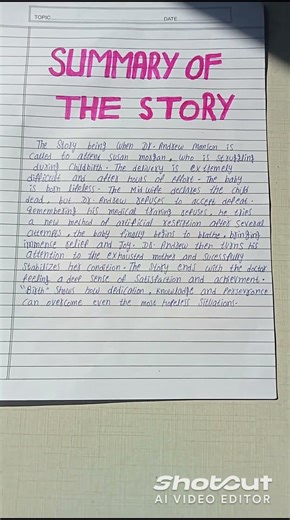 TOPIC
DATE
SUMMARY OF
THE STORY
The Story being when Dr. Andrew Manson is
called to attent Susan morgan, who is struggling
during childbirth. The delivery is extremely
difficult and after hours of effort. The baby
is born lifeless. The Midwife declares the child
dead, but Dr. Andrew refuses to accept defeat.
Remembering his medical traning refuses, he tries
a new method of artificial respiration after several
attemps, the baby finally begins to breathe, bringing
immense relief and Joy. DR. Andrew then turns his
attention to the exhausted mother and sucessfully
stabilizes her condition. The Story ends with the doctor
feeling a deep sense of satisfaction and achievment.
"Birth" shows how dedication, knowledge and perseverance
can overcome even the most hopeless situations.
ShotCut
AI VIDEO EDITOR